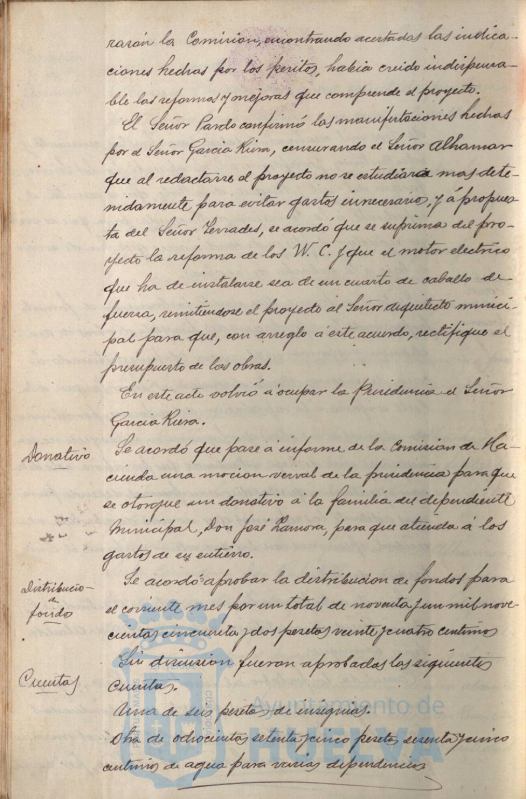 razón la Comisión, encontrando acertadas las indica-
ciones hechas por los peritos, habia creido indispensa-
ble las reformas y mejoras que comprende el proyecto.
El Señor Pardo confirmó las manifestaciones hechas
por el Señor Garcia Riera, censurando el Señor Alhamar
que al redactarse el proyecto no se estudiara mas dete-
nidamente para evitar gastos innecesarios, y á propues-
ta del Señor Serrades, se acordó que se suprima del pro-
yecto la reforma de los W. C. y que el motor electrico
que ha de instalarse sea de un cuarto de caballo de
fuerza, remitiendose el proyecto al Señor Arquitecto munici-
pal para que, con arreglo á este acuerdo, rectifique el
presupuesto de las obras.
En este acto volvió á ocupar la Presidencia el Señor
Garcia Riera.
Donativo
Se acordó que pase á informe de la Comision de Ha-
cienda una mocion verval de la presidencia para que
se otorgue un donativo á la familia del dependiente
Municipal, Don José Zamora, para que atienda á los
gastos de su entierro.
Distribucio-
de
fondos
Se acordó aprobar la distribucion de fondos para
el corriente mes por un total de noventa y un mil nove-
cientas cincuenta y dos pesetas veinte y cuatro centimos
Cuentas
Sin discusion fueron aprobadas las siguientes
cuentas.
Una de seis pesetas, de insignias.
Otra de ochocientas setenta y cinco pesetas sesenta y cinco
centimos de agua para varias dependencias
Ayuntamiento de
HUELVA